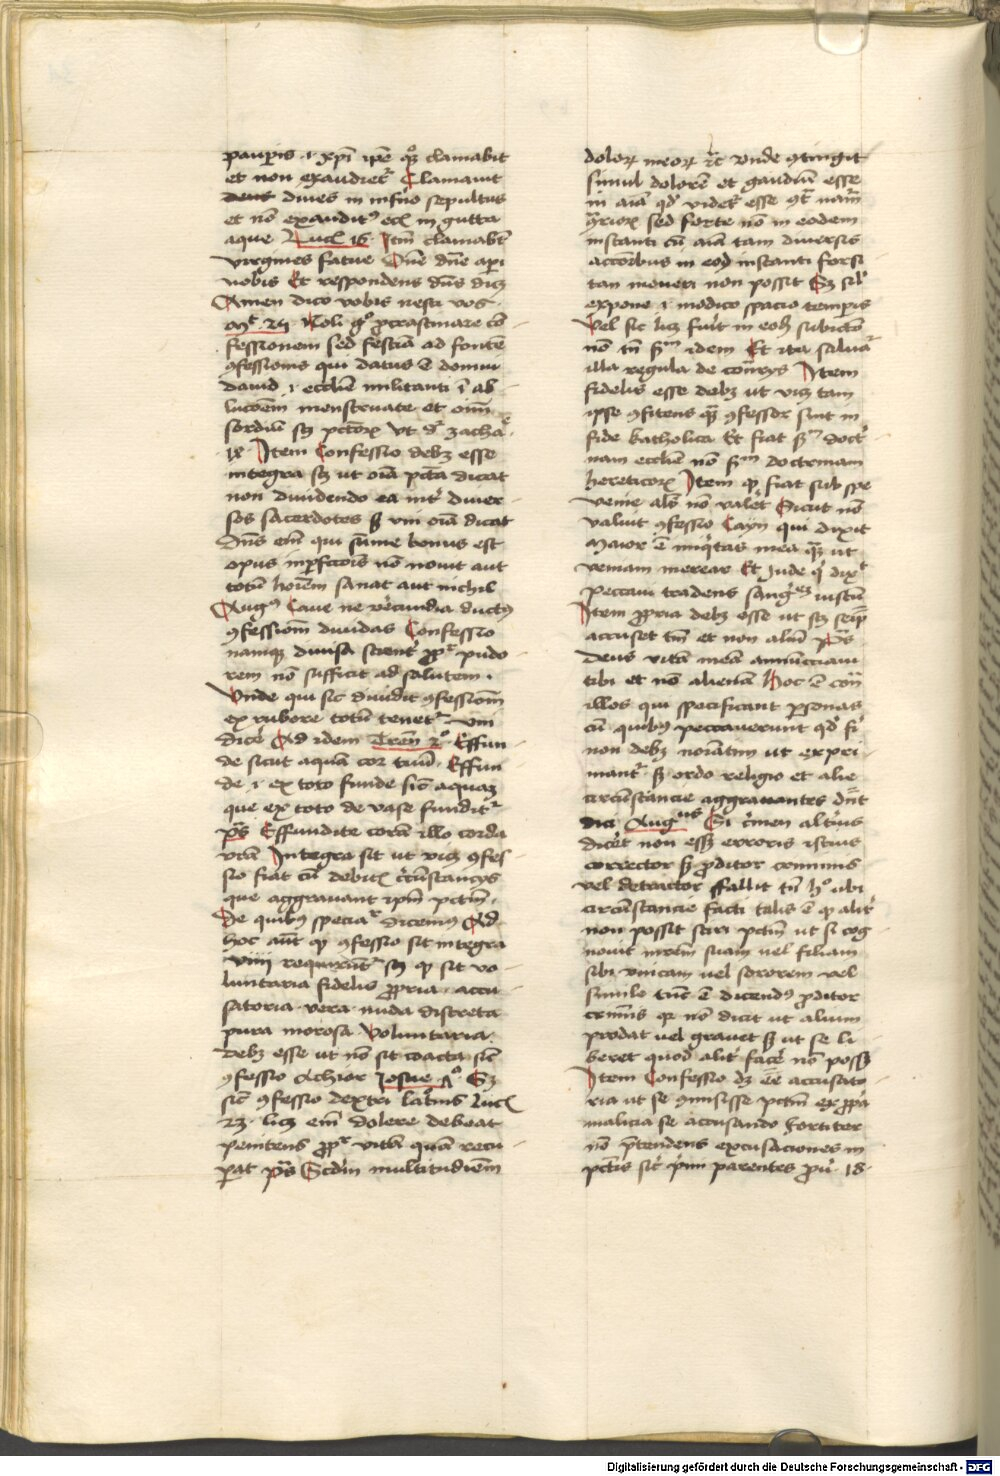 pauperis .i. xpi ipe q3 clamabit
et non exaudiet2 Clamauit
diues in inferno sepultus
et no exauditus ecia in gutta
aque Luce 16 Item clamabunt
virgines fatue Dne dne aperi
nobis Et respondens dns dicit
Amen dico vobis nescio vos
Mt 25 Noli g° procrastinare con
fessionem sed festina ad fonte
confessionis qui datus e domui
dauid .i. ecclie militanti i ab
lucoem menstruate et oim
sordiu scz pctorum Ut dr zacha
ix Item Confessio debet esse
integra scz ut oia pcta dicat
non diuidendo ea inter diuer
sos sacerdotes sz vni oia dicat
Dns em qui sume bonus est
opus inperfectionis no nouit aut
totu hoiem sanat aut nichil
Aug9 Caue ne verecundia ductus
confessionem diuidas Confessio
namque diuisa propter pudo
rem no sufficit ad salutem .
Vnde qui sic diuidit confessionem
ex rubore totu tenet2 vni
dicere Ad idem Tren 2° Effun
de sicut aqua cor tuu Effun
de .i. ex toto funde sic aquaz
que ex toto de vase fundit2
ps Effundite cora illo corda
vra Integra sit ut vz confes
sio fiat cu debitis circumstancys
que aggrauant ipm pctm.
De quibus specialiter dicemus Ad
hoc aut q confessio sit integra
viiii requirunt2 scz q sit vo
luntaria fidelis propria accu
satoria vera nuda discreta
pura morosa Voluntaria
debet esse ut no sit coacta sic
confessio Achior Iosue Sz
sic confessio dextri latronis Luce
23 licz em dolere debeat
penitens propter vita qua recu
perat ps Scdm multitudiem
dolorum meorum etc vnde contingit
simul dolore et gaudiu esse
in aia qd videtur esse contra nam
contrariorum sed forte no in eodem
instanti cu aia tam diuersis
actoribus in eod instanti forsi
tan moueri non possit Sz sil
expone .i. modico spacio temporis
Vel sic licz fuerit in eod subiecto
no tn sm idem Et ita saluatur
illa regula de contrarys Item
fidelis esse debet ut vz tam
ipse confitens quam confessor sint in
fide katholica Et fiat sm doctri
nam ecclie no sm doctrinam
hereticorum Item q fiat sub spe
venie als no valet Sicut no
valuit confessio Cayn qui dixit
Maior e iniquitas mea quam ut
veniam merear Et Jude qui dixit
Peccaui tradens sanguinem iustu
Item propria debet esse ut scz seipm
accuset tm et non aliu ps
Deus vita mea annuncciaui
tibi et no aliena Hoc e contra
illos qui specificant personas
cu quibus peccauerunt qd fi
non debet noiatim ut expri
mantur sz ordo religio et alie
circumstancie aggrauantes dnt
dici Augus Si crimen alterius
diceret non esset erroris istius
corrector sz proditor communis
vel detractor ffallit tn h° ubi
circumstancie facti talis e q aliter
non possit sciri pctm ut si cog
nouit matrem suam uel filiam
sibi vnicam uel sororem vel
simile tunc e dicendus proditor
criminis qr no dicit ut alium
prodat uel grauet sz ut se li
beret quod aliter facere no posset
Item Confessio dz ee accusato
ria ut se commisisse pctm ex propria
malicia se accusando fortiter
no pretendens excusaciones in
pctis sic primi parentes Prou 18
Digitalisierung gefördert durch die Deutsche Forschungsgemeinschaft - DFG